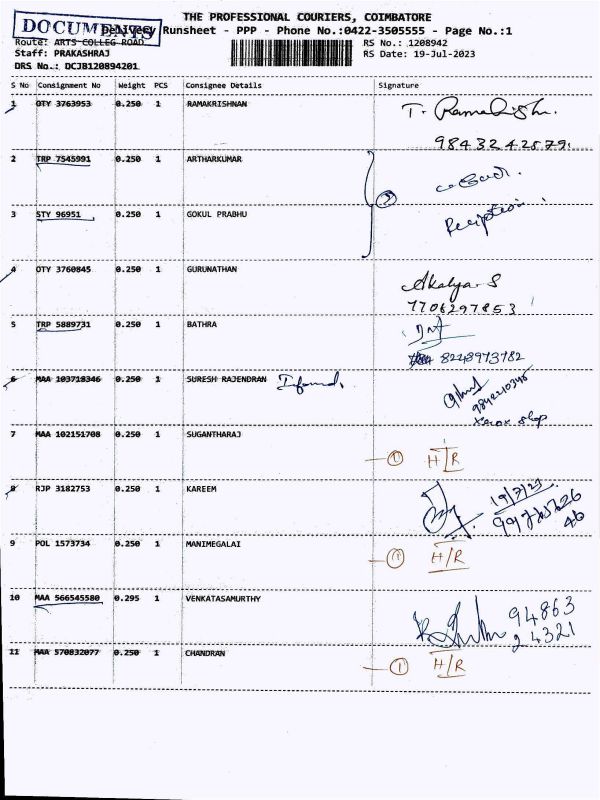 THE PROFESSIONAL COURIERS, COIMBATORE
DOCUMENTS
Delivery Runsheet - PPP - Phone No.:0422-3505555 - Page No.:1
Route: ARTS COLLEG ROAD
RS No.: 1208942
Staff: PRAKASHRAJ
RS Date: 19-Jul-2023
DRS No.: DCJB120894201
S No Consignment No Weight PCS Consignee Details Signature
1 OTY 3763953 0.250 1 RAMAKRISHNAN T. Ramakrish.
9843242879.
2 TRP 7545991 0.250 1 ARTHARKUMAR
②
3 STY 96951 0.250 1 GOKUL PRABHU Reciption.
4 OTY 3760845 0.250 1 GURUNATHAN Akalya. S
7706297853
5 TRP 5889731 0.250 1 BATHRA
8248973782
6 MAA 103718346 0.250 1 SURESH RAJENDRAN
9842210345
xerox shop
7 MAA 102151708 0.250 1 SUGANTHARAJ
① H/R
8 RJP 3182753 0.250 1 KAREEM
19/7/23
46
9 POL 1573734 0.250 1 MANIMEGALAI
① H/R
10 MAA 566545580 0.295 1 VENKATASAMURTHY
94863
24321
11 MAA 570832077 0.250 1 CHANDRAN
① H/R